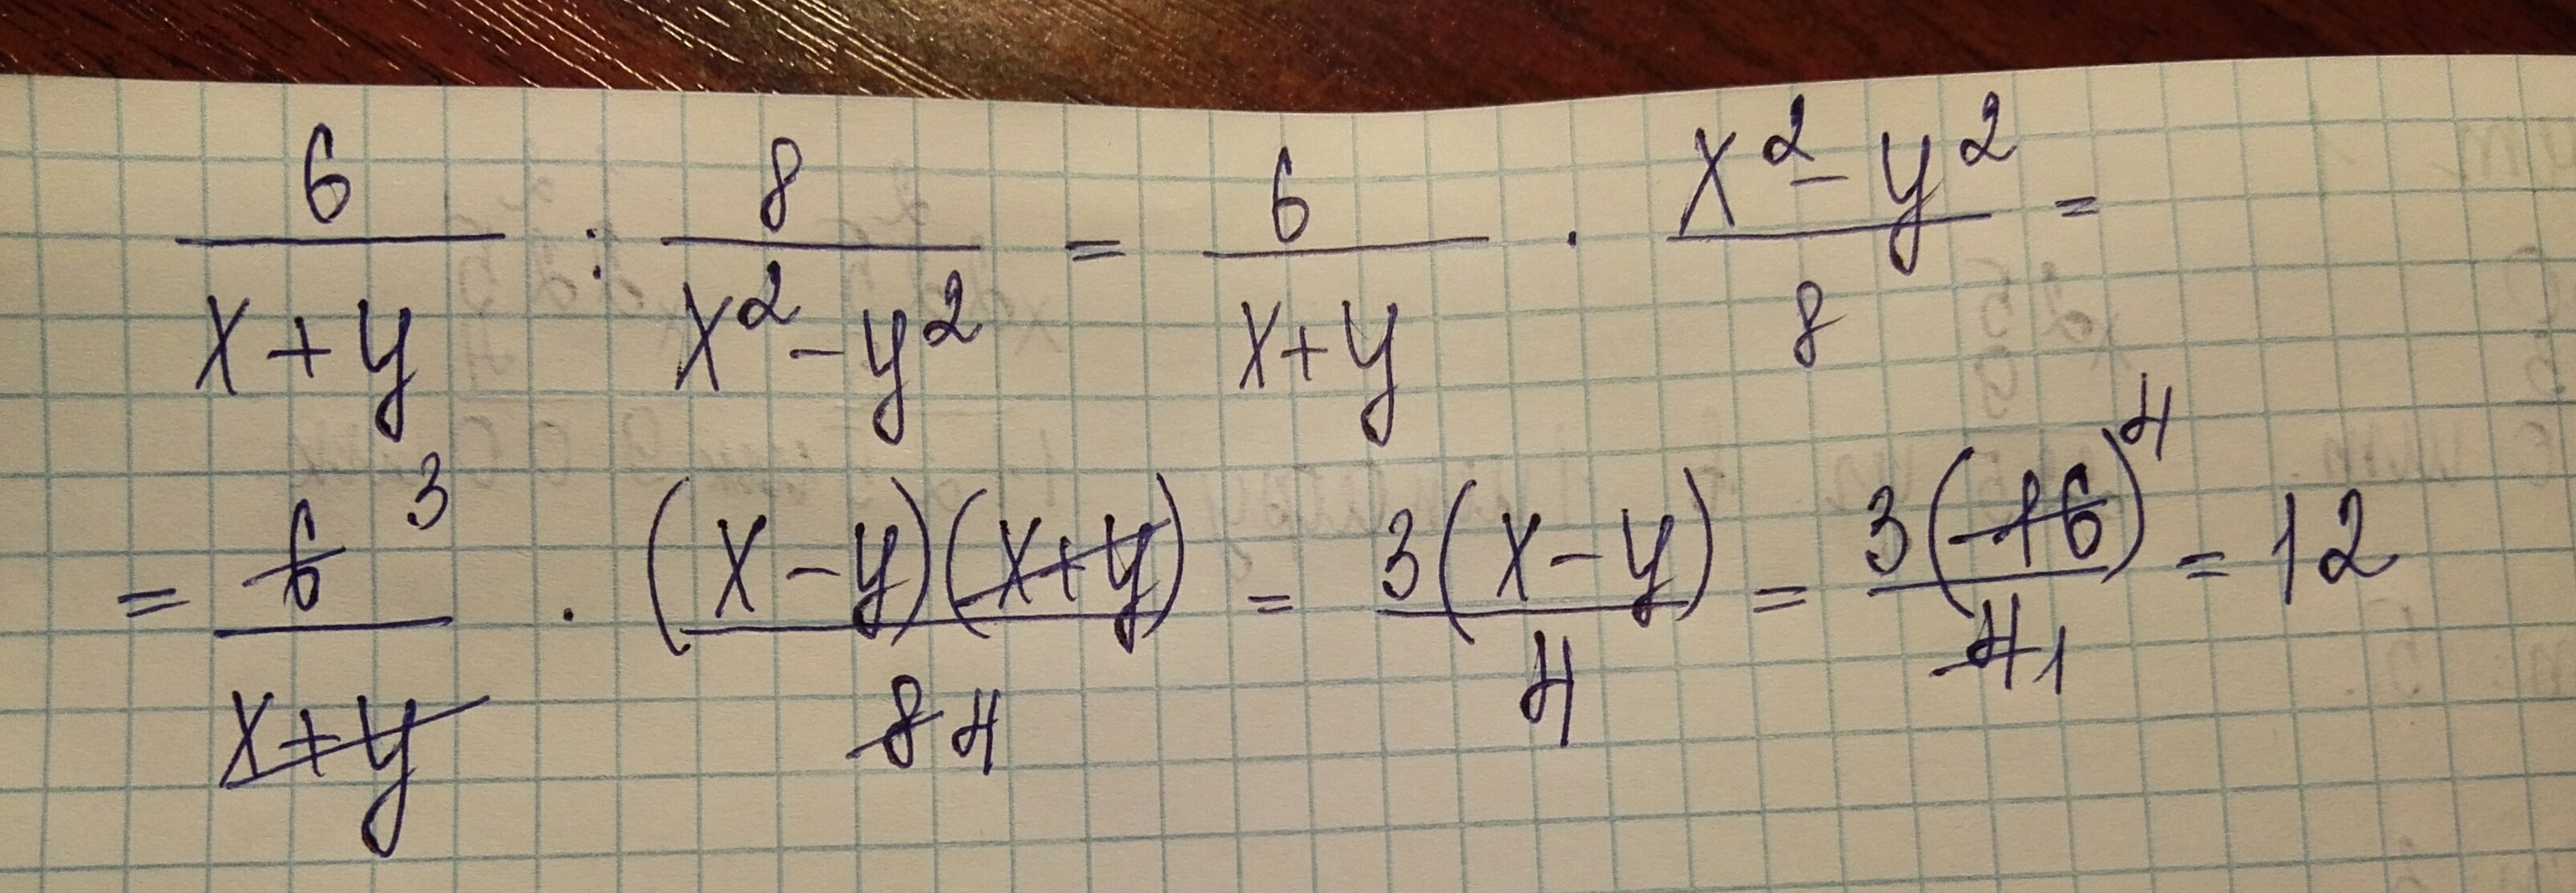 6/(x+y) : 8/(x²-y²) = 6/(x+y) · (x²-y²)/8 =
= 6 3/(x+y) · (x-y)(x+y)/8 4 = 3(x-y)/4 = 3(-16) 4/4 1 = 12